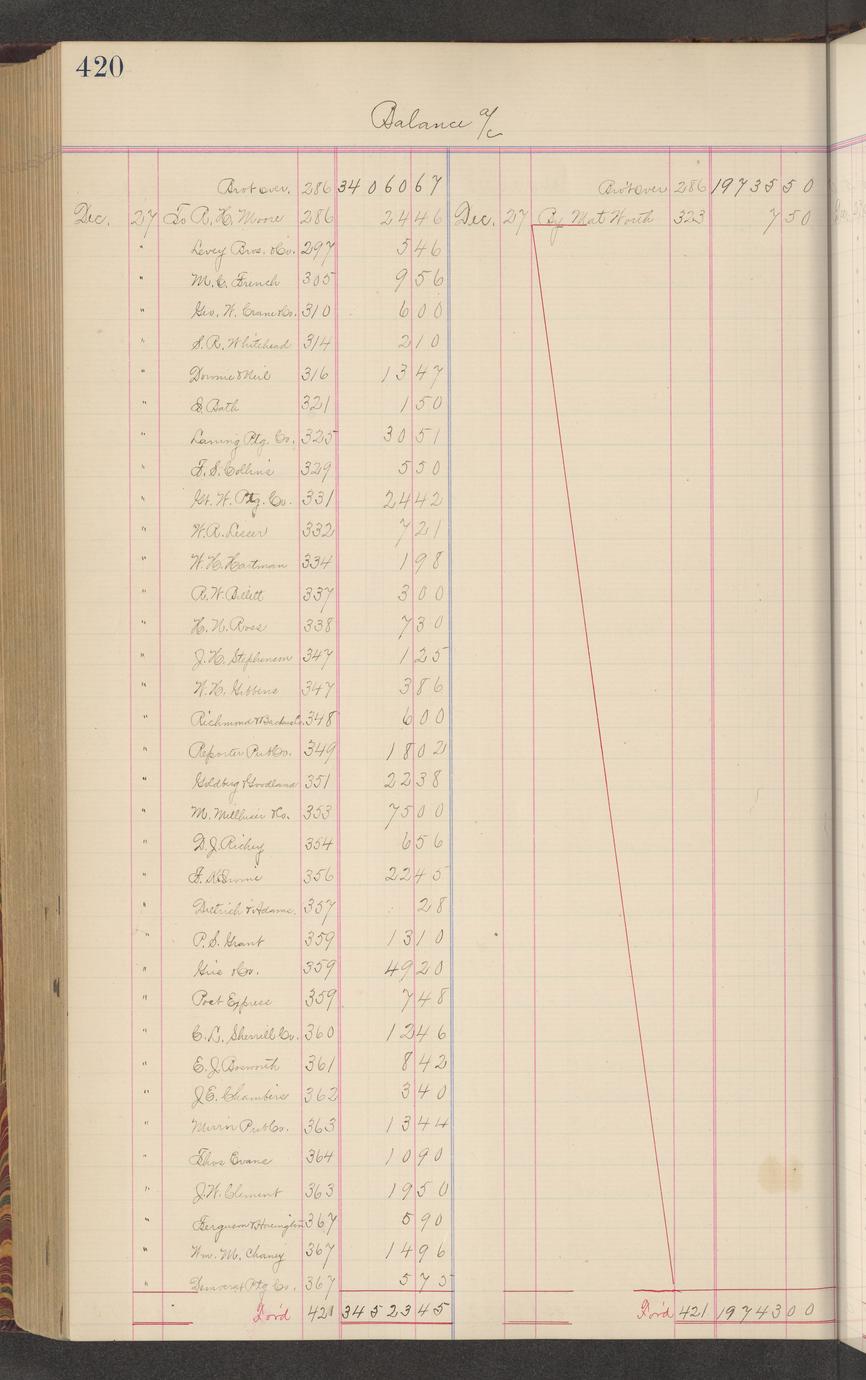 420
Balance a/c
Brot over. 286 34 060 67 Brot over 286 19735 50
Dec. 27 To R. H. Moore 286 24 46 Dec. 27 By Mat Worth 323 7 50
" Levey Bros. & Co. 297 5 46
" M. C. French 305 9 56
" Geo. W. Crane & Co. 310 6 00
" S. R. Whitehead 314 2 10
" 316 13 47
" E. Bath 321 1 50
" Laning Ptg. Co. 325 30 51
" F. S. Collins 329 5 50
" Gt. W. Ptg. Co. 331 24 42
" W. R. Lesser 332 7 21
" W. H. Hartman 334 1 98
" R. W. 337 3 00
" H. N. Ross 338 7 30
" J. H. Stephenson 347 1 25
" W. H. Gibbens 347 3 86
" Richmond & Backus Co. 348 6 00
" Reporter Pub Co. 349 18 02
" Goldberg & Goodland 351 22 38
" M. & Co. 353 75 00
" D. J. Richey 354 6 56
" 356 22 45
" Dietrich & Adams. 357 28
" P. S. Grant 359 13 10
" & Co. 359 49 20
" Post Express 359 7 48
" C. L. Sherrill Co. 360 12 46
" E. J. Bosworth 361 8 42
" J. E. Chambers 362 3 40
" Mirror Pub Co. 363 13 44
" Thos Evans 364 10 90
" J. W. Clement 363 19 50
" Ferguson & 367 5 90
" Wm. M. Chaney 367 14 96
" Democrat Ptg Co. 367 5 75
For'd 421 34 523 45 For'd 421 19743 00